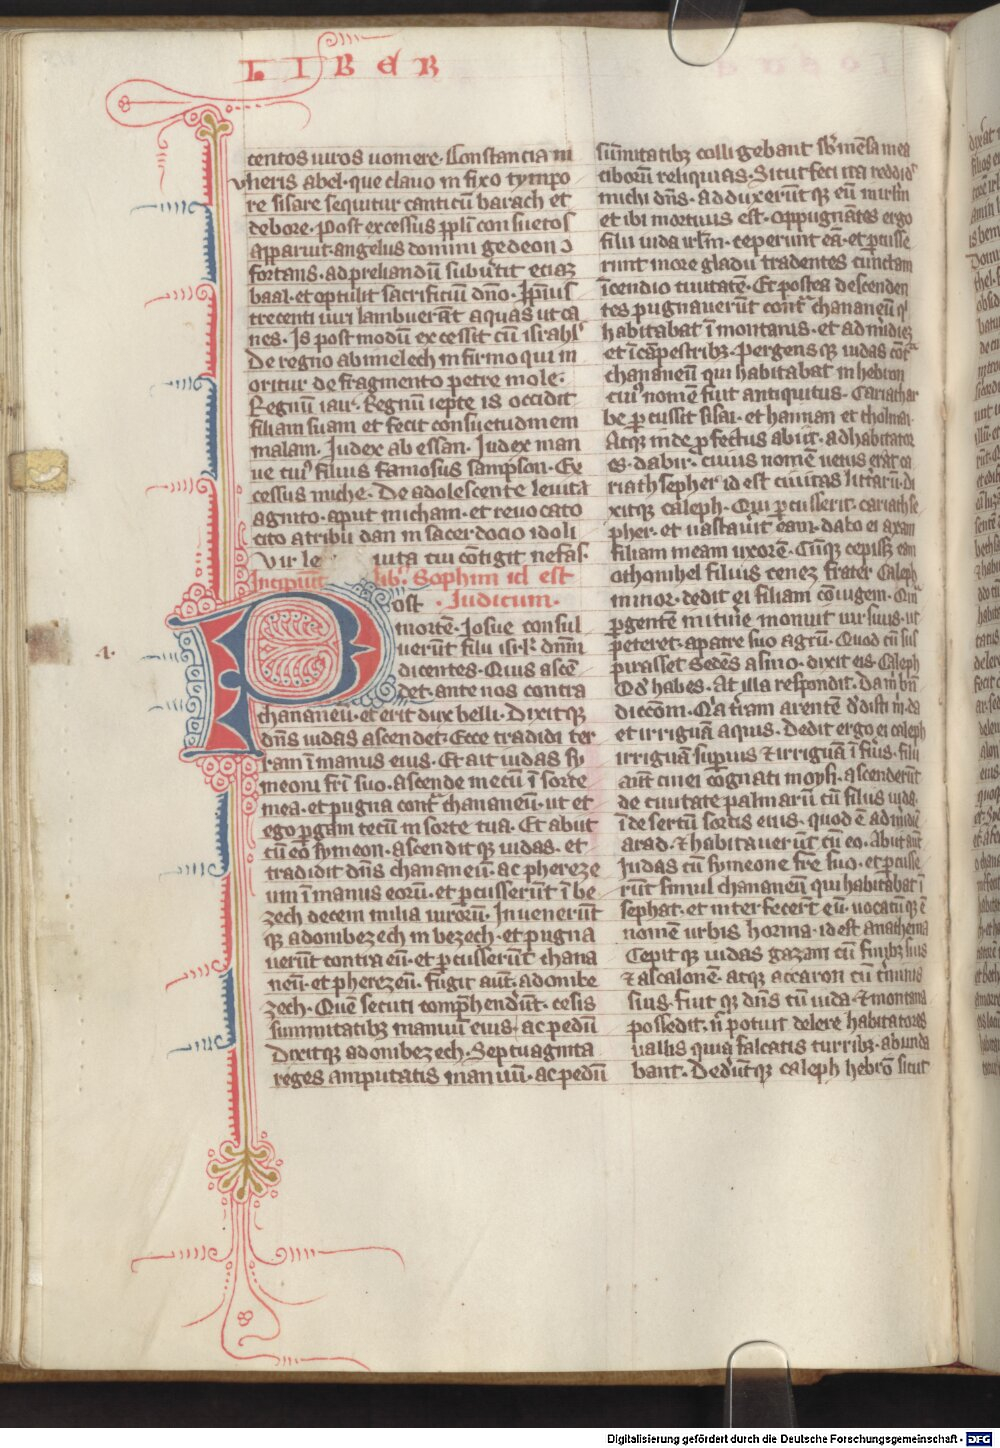 LIBER
centos uiros uomere. Constancia m
vheris abel. que clauo in fixo tympo
re sisare sequitur canticum barach et
debore. Post excessus ppłi consuetos
Apparuit angelus domini gedeon ↄ
fortans. ad preliandū subuertit etiaꝫ
baal. et optulit sacrificiū dño. Ip̄ius
trecenti uiri lambuerāt aquas ut ca
nes. Is post modū excessit cū israhł
De regno abimelech in firmo qui in
oritur de fragmento petre mole.
Regnū iair. Regnū iepte is occidit
filiam suam et fecit consuetudinem
malam. Iudex abessan. Iudex man
ue cuiꝰ filius famosus sampson. Ex
cessus miche. De adolescente leuita
agnito. aput micham. et reuocato
cito a tribu dan in sacerdocio idoli
vir le uita cui cōtigit nefas.
Incipiūt lib. Sophim id est
Post . Iudicum.
mortē. Iosue consul
uerūt filii isrł dnm̄
dicentes. Quis ascē
det. ante nos contra
chananeū. et erit dux belli. Dixitqꝫ
dn̄s iudas ascendet. Ecce tradidi ter
ram ī manus eius. Et ait iudas sy
meoni fr̄i suo. ascende mecū ī sorte
mea. et pugna contᵃ chananeū. ut et
ego ꝑgam tecū in sorte tua. Et abiit
cū eo symeon. ascenditqꝫ iudas. et
tradidit dn̄s chananeū. ac phereze
um ī manus eorū. et ꝑcusserūt ī be
zech decem milia uirorū. Inuenerūt
qꝫ adombezech in bezech. et pugna
uerūt contra eū. et ꝑcusserūt chana
neū. et pherezeū. fugit aut̄. adombe
zech. Quē secuti comp̄henderūt. cesis
summitatibꝫ manuū eius. ac pedū
Dixitqꝫ adombezech. Septuaginta
reges amputatis manuū. ac pedū
sum̄itatibꝫ colligebant sb̓ mēsa mea
ciborū reliquias. Sicut feci ita reddidᵗ
michi dn̄s. adduxerūtqꝫ eū in irłm
et ibi mortuus est. oppugnātes ergo
filii iuda irłm. ceperunt eā. et ꝑcusse
runt in ore gladii tradentes cunctam
īcendio ciuitatē. Et postea descenden
tes pugnauerūt contᵃ chananeū qⁱ
habitabat ī montanis. et ad midieꝫ
et ī cāpestribꝫ. Pergensqꝫ iudas cōtᵃ
chananeū qui habitabat in hebron
cuiꝰ nomē fuit antiquitus. Cariathar
be ꝑcussit sisai. et haiman et tholmai.
Atqꝫ inde ꝓfectus abiit. ad habitator
es. dabir. cuius nomē uetus erat ca
riath sepher id est ciuitas litt̄arū. di
xitqꝫ caleph. Qui ꝑcusserit. cariath se
pher. et uastauit eam. dabo ei axam
filiam meam uxorē. Cūqꝫ cepissꝫ eam
othonihel filius cenez frater Caleph
minor. dedit ei filiam cōiugem. Quā
ꝑgentē in itin̄e monuit uir suus. ut
peteret. a patre suo agrū. Quod cū sus
pirasset sedēs asino. dixit eis Caleph
Qd̓ habes. At illa respondit. Da m̄ bn̄
diccōm. Qᵃ tr̄am arentē ddisti m̄. da
et irriguā aquis. Dedit ergo ei caleph
irriguā suꝑius ⁊ irriguā ī fius. filii
aut̄ cinei cognati moysi. ascenderūt
de ciuitate palmarū cū filiis iuda.
ī desertū sortis eius. quod ē ad mīdiē
arad. ⁊ habitauerūt cū eo. Abiit aut̄
Iudas cū symeone fr̄e suo. et ꝑcusse
rūt simul chananeū qui habitabat ī
sephat. et interfecer̄t eū. uocatūqꝫ ē
nomē urbis horma. id est anathema
Cepitqꝫ iudas gazam cū finibꝫ suis
⁊ ascalonē. atqꝫ accaron cū t̄minis
suis. fuitqꝫ dn̄s cū iuda. ⁊ montana
possedit. n̄ potuit delere habitatores
uallis quia falcatis curribꝫ. abunda
bant. Dederūtqꝫ caleph hebrō sicut
Digitalisierung gefördert durch die Deutsche Forschungsgemeinschaft - DFG